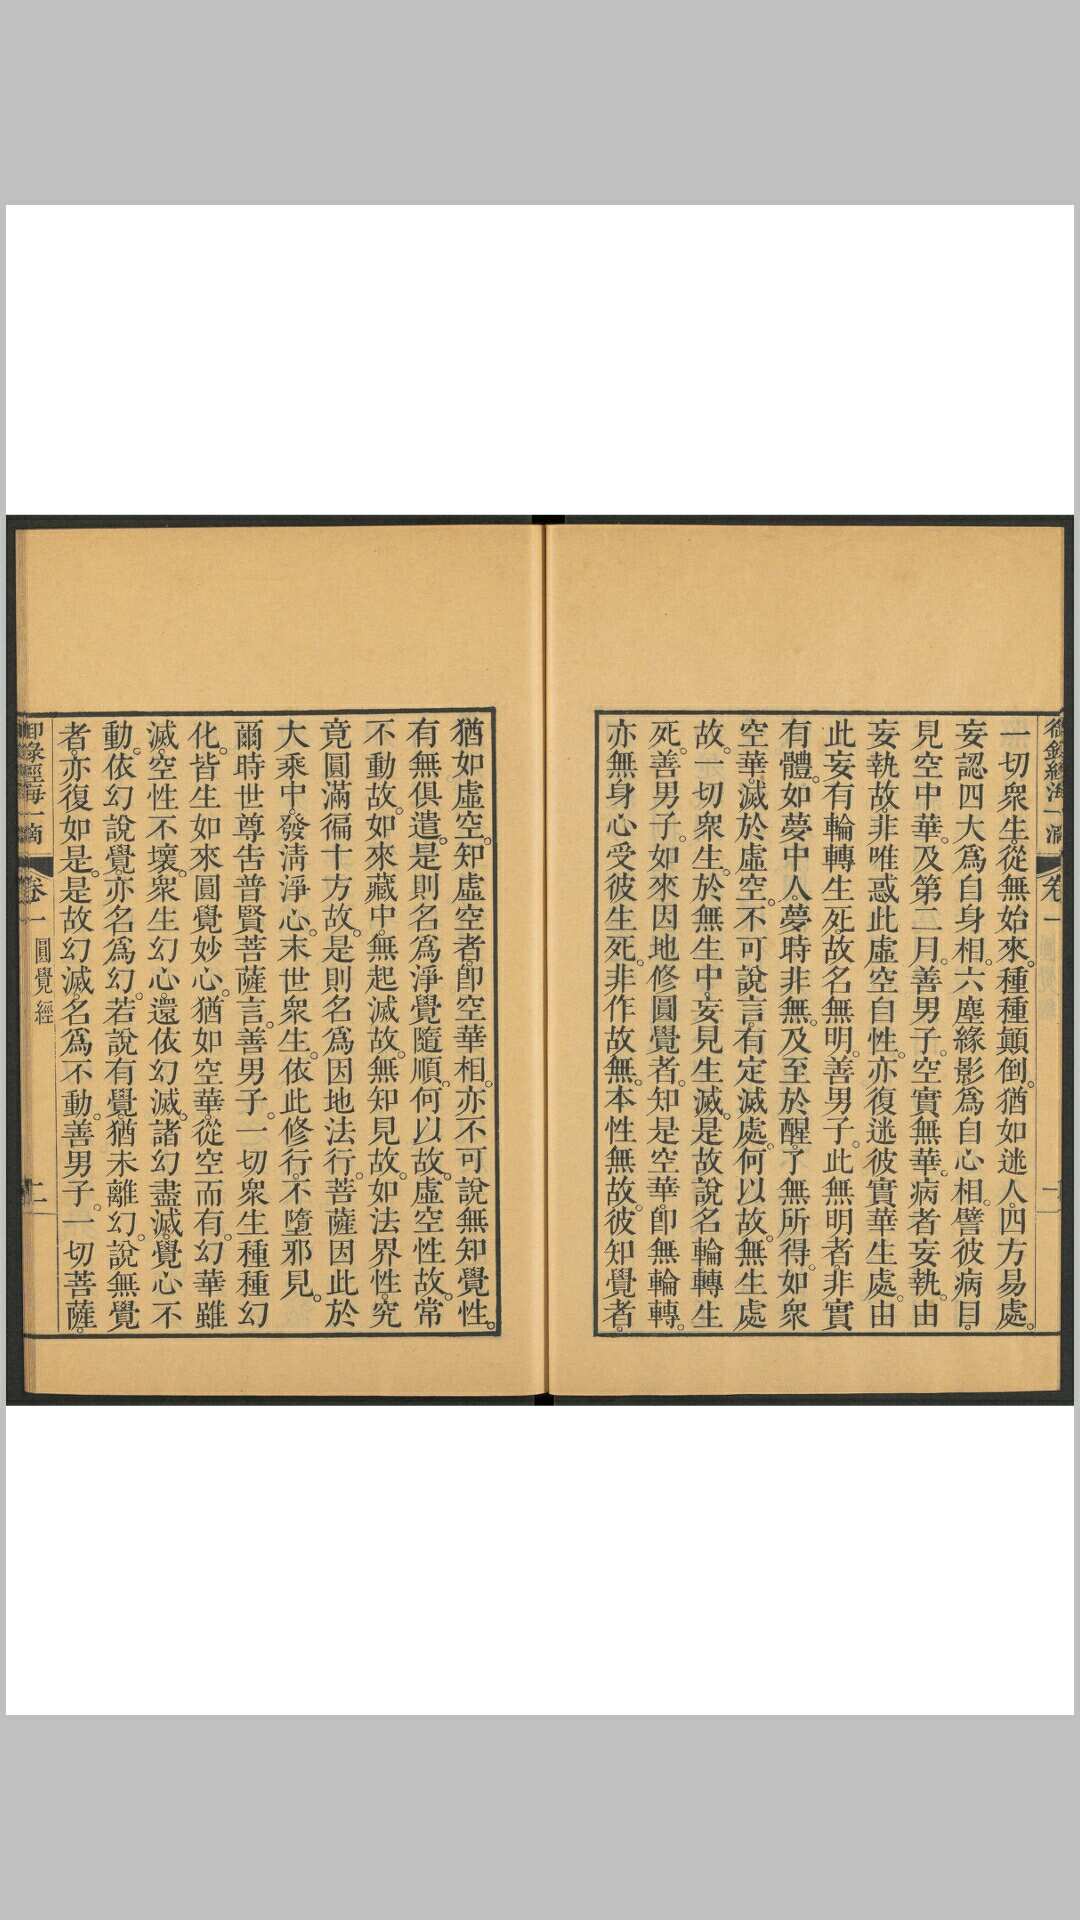 一切衆生。從無始來。種種顚倒。猶如迷人。四方易處。
妄認四大爲自身相。六塵緣影爲自心相。譬彼病目。
見空中華。及第二月。善男子。空實無華。病者妄執。由
妄執故。非唯惑此虛空自性。亦復迷彼實華生處。由
此妄有輪轉生死。故名無明。善男子。此無明者。非實
有體。如夢中人。夢時非無。及至於醒。了無所得。如衆
空華。滅於虛空。不可說言。有定滅處。何以故。無生處
故。一切衆生。於無生中。妄見生滅。是故說名輪轉生
死。善男子。如來因地修圓覺者。知是空華。卽無輪轉。
亦無身心受彼生死。非作故無。本性無故。彼知覺者。
猶如虛空。知虛空者。卽空華相。亦不可說無知覺性。
有無俱遣。是則名爲淨覺隨順。何以故。虛空性故。常
不動故。如來藏中。無起滅故。無知見故。如法界性。究
竟圓滿徧十方故。是則名爲因地法行。菩薩因此於
大乘中。發淸淨心。末世衆生。依此修行。不墮邪見。
爾時世尊告普賢菩薩言。善男子。一切衆生種種幻
化。皆生如來圓覺妙心。猶如空華。從空而有。幻華雖
滅。空性不壞。衆生幻心。還依幻滅。諸幻盡滅。覺心不
動。依幻說覺。亦名爲幻。若說有覺。猶未離幻。說無覺
者。亦復如是。是故幻滅。名爲不動。善男子。一切菩薩。
御錄經海一滴 卷一 圓覺經 二